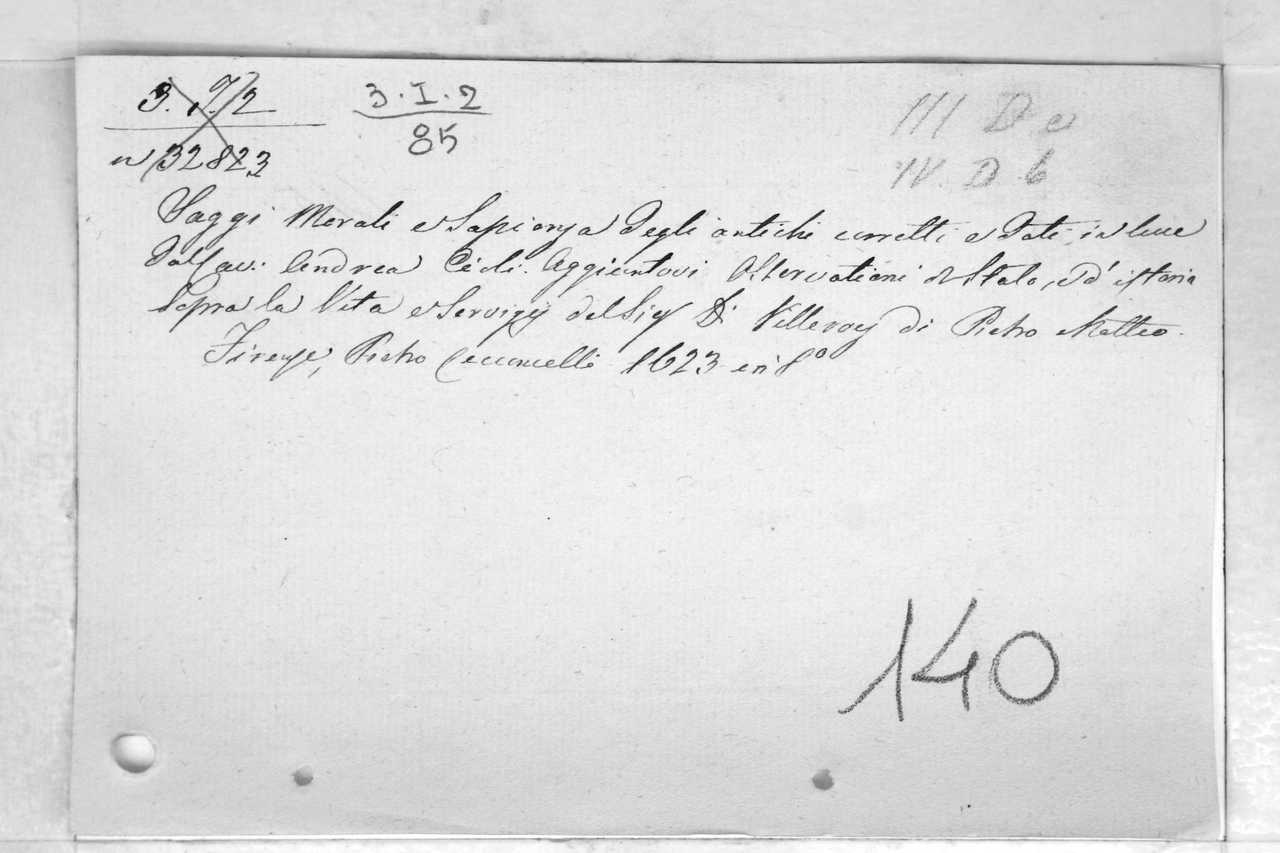 3. I. 2
85
n 32823
III D e
IV. D. 6
Saggi Morali e Sapienza degli antichi corretti e dati in luce
dal Cav: Andrea Cioli. Aggiuntovi Osservationi di Stato, e d'istoria
sopra la Vita e Servigij del Sig. Di Villeroy di Pietro Matteo.
Firenze, Pietro Cecconcelli 1623 in 8º
140